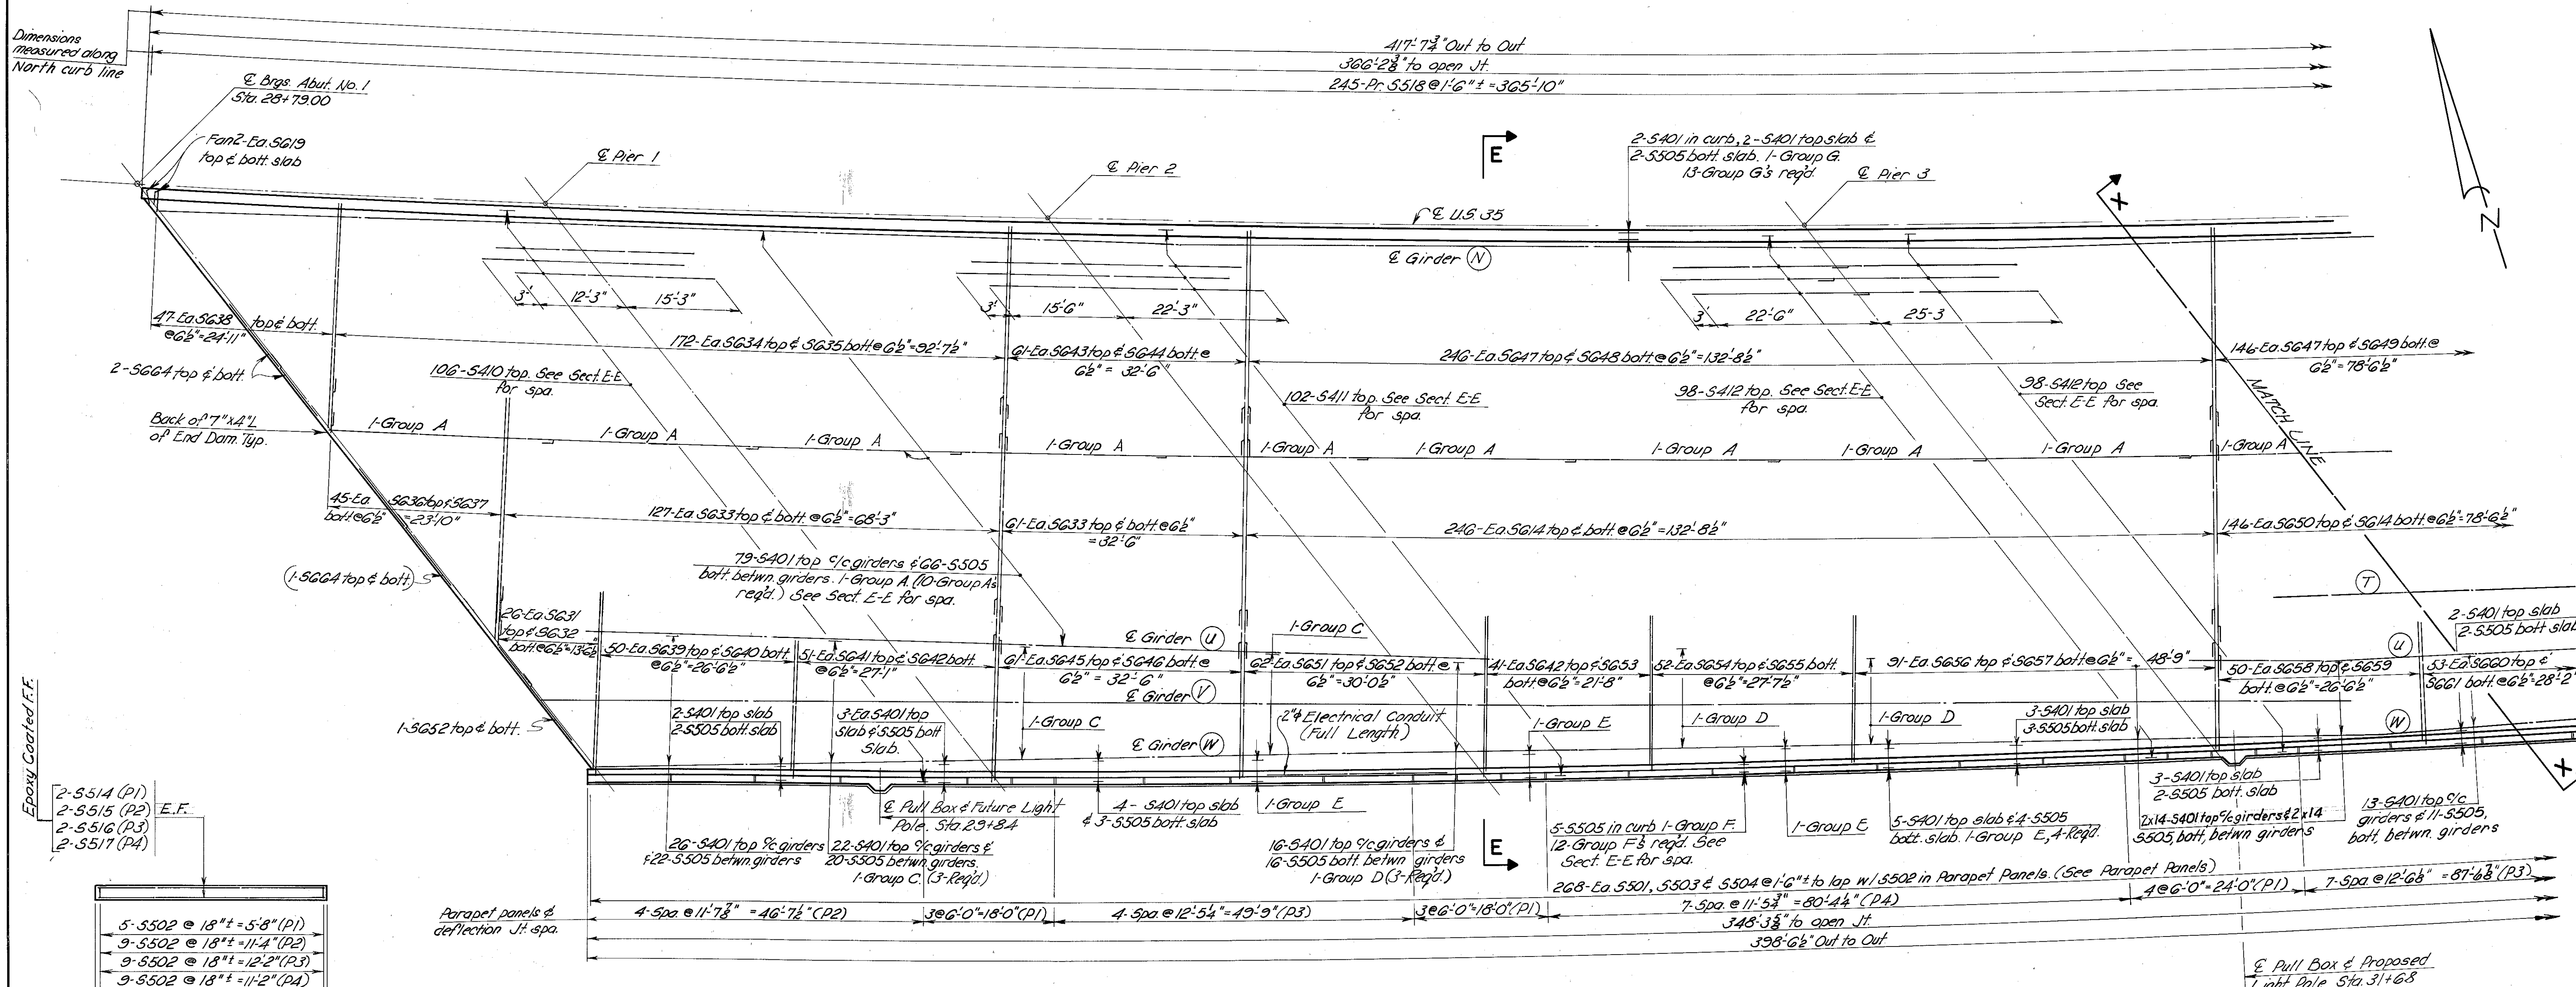 Dimensions
measured along
North curb line
417'-7 3/4" Out to Out
366'-2 3/8" to open Jt.
245-Pr. S518 @ 1'-6" ± = 365'-10"
℄ Brgs. Abut. No. 1
Sta. 28+79.00
Fan 2-Ea. S619
top & bott. slab
℄ Pier 1
℄ Pier 2
E
2-S401 in curb, 2-S401 top slab &
2-S505 bott. slab. 1-Group G.
13-Group G's req'd.
℄ Pier 3
X
N
℄ U.S. 35
℄ Girder N
3' 12'-3" 15'-3"
3' 15'-6" 22'-3"
3' 22'-6" 25-3
47-Ea. S638 top & bott.
@ 6 1/2" = 24'-11"
172-Ea. S634 top & S635 bott. @ 6 1/2" = 92'-7 1/2"
61-Ea. S643 top & S644 bott. @
6 1/2" = 32'-6"
246-Ea. S647 top & S648 bott. @ 6 1/2" = 132'-8 1/2"
146-Ea. S647 top & S649 bott. @
6 1/2" = 78'-6 1/2"
2-S664 top & bott.
106-S410 top. See Sect. E-E
for spa.
102-S411 top. See Sect. E-E
for spa.
98-S412 top. See Sect. E-E
for spa.
98-S412 top See
Sect. E-E for spa.
MATCH LINE
Back of 7"x4" L
of End Dam. Typ.
1-Group A
1-Group A
1-Group A
1-Group A
1-Group A
1-Group A
1-Group A
1-Group A
1-Group A
1-Group A
45-Ea. S636 top & S637
bott. @ 6 1/2" = 23'-10"
127-Ea. S633 top & bott. @ 6 1/2" = 68'-3"
61-Ea. S633 top & bott. @ 6 1/2"
= 32'-6"
246-Ea. S614 top & bott. @ 6 1/2" = 132'-8 1/2"
146-Ea. S650 top & S614 bott. @ 6 1/2" = 78'-6 1/2"
79-S401 top c/c girders & 66-S505
bott. betwn. girders. 1-Group A. (10-Group A's
req'd.) See Sect. E-E for spa.
(1-S664 top & bott.)
T
26-Ea. S631
top & S632
bott. @ 6 1/2" = 13'-6 1/2"
50-Ea. S639 top & S640 bott.
@ 6 1/2" = 26'-6 1/2"
51-Ea. S641 top & S642 bott.
@ 6 1/2" = 27'-1"
℄ Girder U
61-Ea. S645 top & S646 bott. @
6 1/2" = 32'-6"
1-Group C
62-Ea. S651 top & S652 bott. @
6 1/2" = 30'-0 1/2"
41-Ea. S642 top & S653
bott. @ 6 1/2" = 21'-8"
52-Ea. S654 top & S655 bott.
@ 6 1/2" = 27'-7 1/2"
91-Ea. S656 top & S657 bott. @ 6 1/2" = 48'-9"
U
50-Ea. S658 top & S659
bott. @ 6 1/2" = 26'-6 1/2"
2-S401 top slab
2-S505 bott slab
53-Ea. S660 top &
S661 bott. @ 6 1/2" = 28'-2"
℄ Girder V
1-S652 top & bott.
2-S401 top slab
2-S505 bott. slab
3-Ea S401 top
slab & S505 bott
slab.
1-Group C
℄ Girder W
2"⌀ Electrical Conduit
(Full Length)
1-Group E
1-Group D
1-Group D
3-S401 top slab
3-S505 bott. slab
W
Epoxy Coated F.F.
2-S514 (P1)
2-S515 (P2) E.F.
2-S516 (P3)
2-S517 (P4)
℄ Pull Box & Future Light
Pole. Sta. 29+84
4- S401 top slab
& 3-S505 bott. slab
1-Group E
3-S401 top slab
2-S505 bott. slab
X
26-S401 top c/c girders
& 22-S505 betwn. girders
22-S401 top c/c girders &
20-S505 betwn. girders.
1-Group C. (3-Req'd.)
16-S401 top c/c girders &
16-S505 bott. betwn girders
1-Group D (3-Req'd.)
E
5-S505 in curb 1-Group F.
12-Group F's req'd. See
Sect. E-E for spa.
1-Group E
5-S401 top slab & 4-S505
bott. slab. 1-Group E, 4-Req'd.
2x14-S401 top c/c girders & 2x14
S505, bott, betwn girders
13-S401 top c/c
girders & 11-S505,
bott. betwn. girders
268-Ea S501, S503 & S504 @ 1'-6" ± to lap w/ S502 in Parapet Panels. (See Parapet Panels)
Parapet panels &
deflection Jt. spa.
4-Spa. @ 11'-7 7/8" = 46'-7 1/2" (P2)
3 @ 6'-0" = 18'-0" (P1)
4-Spa. @ 12'-5 1/4" = 49'-9" (P3)
3 @ 6'-0" = 18'-0" (P1)
7-Spa. @ 11'-5 3/4" = 80'-4 1/4" (P4)
4 @ 6'-0" = 24'-0" (P1)
7-Spa. @ 12'-6 1/8" = 87'-6 7/8" (P3)
348'-3 5/8" to open Jt.
398'-6 1/2" Out to Out
5-S502 @ 18" ± = 5'-8" (P1)
9-S502 @ 18" ± = 11'-4" (P2)
9-S502 @ 18" ± = 12'-2" (P3)
9-S502 @ 18" ± = 11'-2" (P4)
℄ Pull Box & Proposed
Light Pole Sta. 31+68